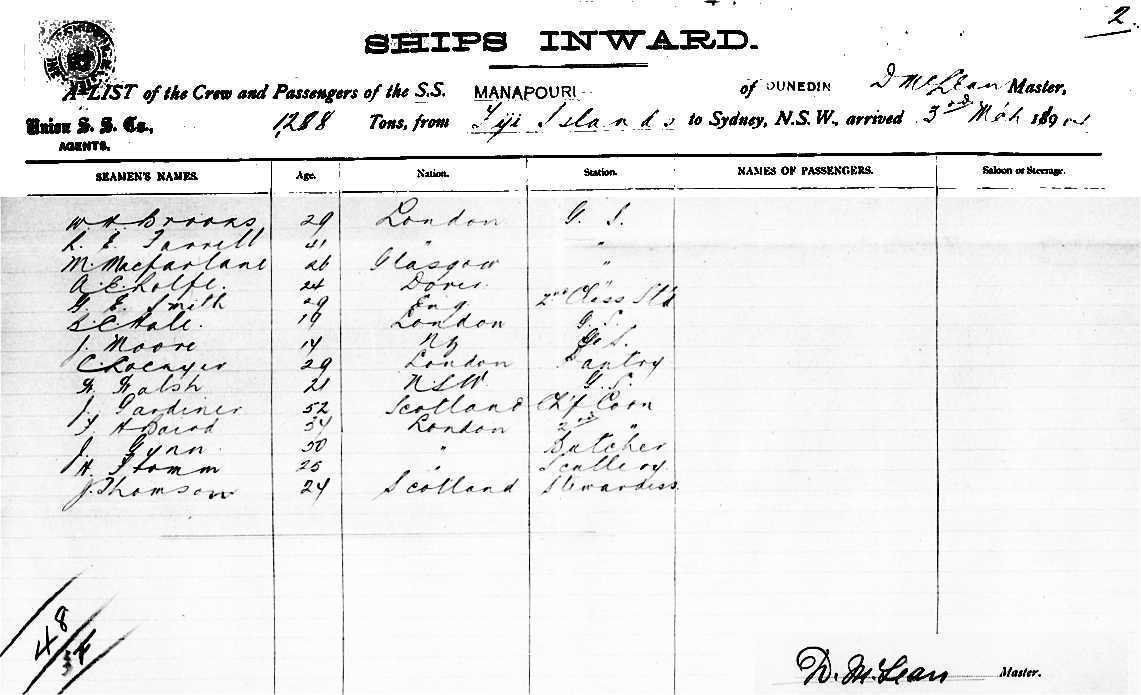 2
SHIPS INWARD.
A LIST of the Crew and Passengers of the S.S. MANAPOURI of DUNEDIN D McLean Master,
Union S. S. Co., 1288 Tons, from Fiji Islands to Sydney, N.S.W., arrived 3rd Mch 189
AGENTS.
SEAMEN'S NAMES. Age. Nation. Station. NAMES OF PASSENGERS. Saloon or Steerage.
W H Brooks 29 London G. S.
L. E. Farrell 41 " "
M. Macfarlane 26 Glasgow "
A. E. Rolfe. 24 Dover "
G. E. Smith 29 Eng 2nd Class Std
S. C. Hale. 19 London G. S.
J. Moore 14 NZ G. S.
29 London Pantry
W. Walsh 21 NSW G. S.
J. Gardiner 52 Scotland Chf Cook
London 2nd "
J. Gynn 30 " Butcher
H. 25 " Scullery
J. Thomson 24 Scotland Stewardess
48
D. McLean Master.